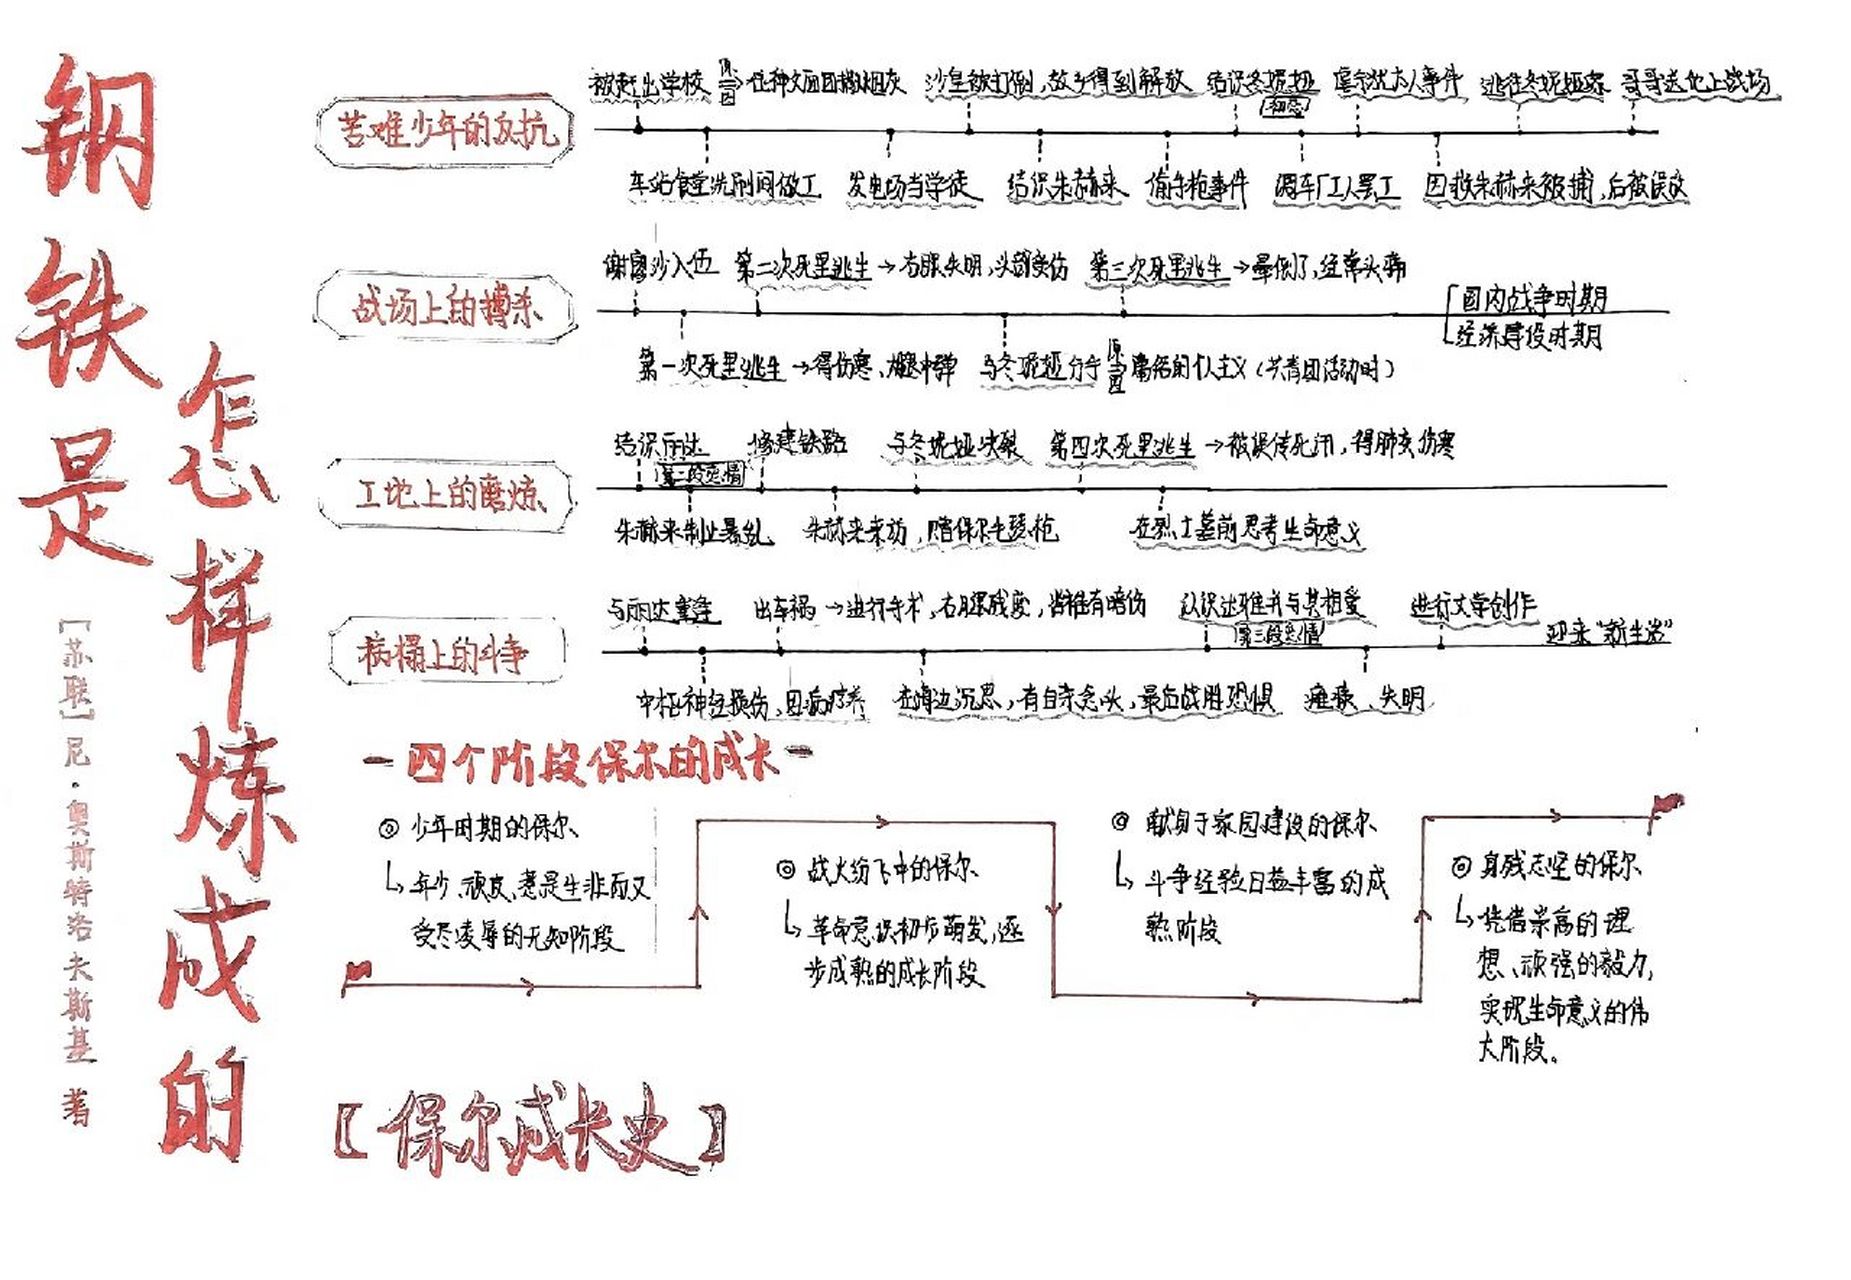 钢铁是
怎样炼成的
[苏联]尼·奥斯特洛夫斯基 著
苦难少年的反抗
被赶出学校 原因 往神父面团撒烟灰 沙皇被打倒,故乡得到解放 结识冬妮娅 虐杀犹太人事件 逃往冬妮娅家 哥哥送他上战场
初恋
车站食堂洗刷间做工 发电场当学徒 结识朱赫来 偷手枪事件 调车厂工人罢工 因救朱赫来被捕,后被误放
战场上的搏杀
谢窝沙入伍 第二次死里逃生→右眼失明,头部受伤 第三次死里逃生→晕倒了,经常头痛
国内战争时期
经济建设时期
第一次死里逃生→得伤寒、大腿中弹 与冬妮娅分手 原因 庸俗的个人主义(共青团活动时)
工地上的磨炼
结识丽达 修建铁路 与冬妮娅决裂 第四次死里逃生→被误传死讯,得肺炎伤寒
第二段爱情
朱赫来制止暴乱 朱赫来来访,赠保尔毛瑟枪 在烈士墓前思考生命意义
病榻上的斗争
与丽达重逢 出车祸→进行手术,右腿残废,脊椎有暗伤 认识达雅并与其相爱 进行文学创作
第三段爱情 迎来“新生活”
中枢神经损伤,因病疗养 在海边沉思,有自杀念头,最后战胜恐惧 瘫痪、失明
-四个阶段保尔的成长-
◎少年时期的保尔
年少、顽皮、惹是生非而又
受尽凌辱的无知阶段
◎战火纷飞中的保尔
革命意识初步萌发,逐
步成熟的成长阶段
◎献身于家园建设的保尔
斗争经验日益丰富的成
熟阶段
◎身残志坚的保尔
凭借崇高的理
想、顽强的毅力,
实现生命意义的伟
大阶段。
【保尔成长史】